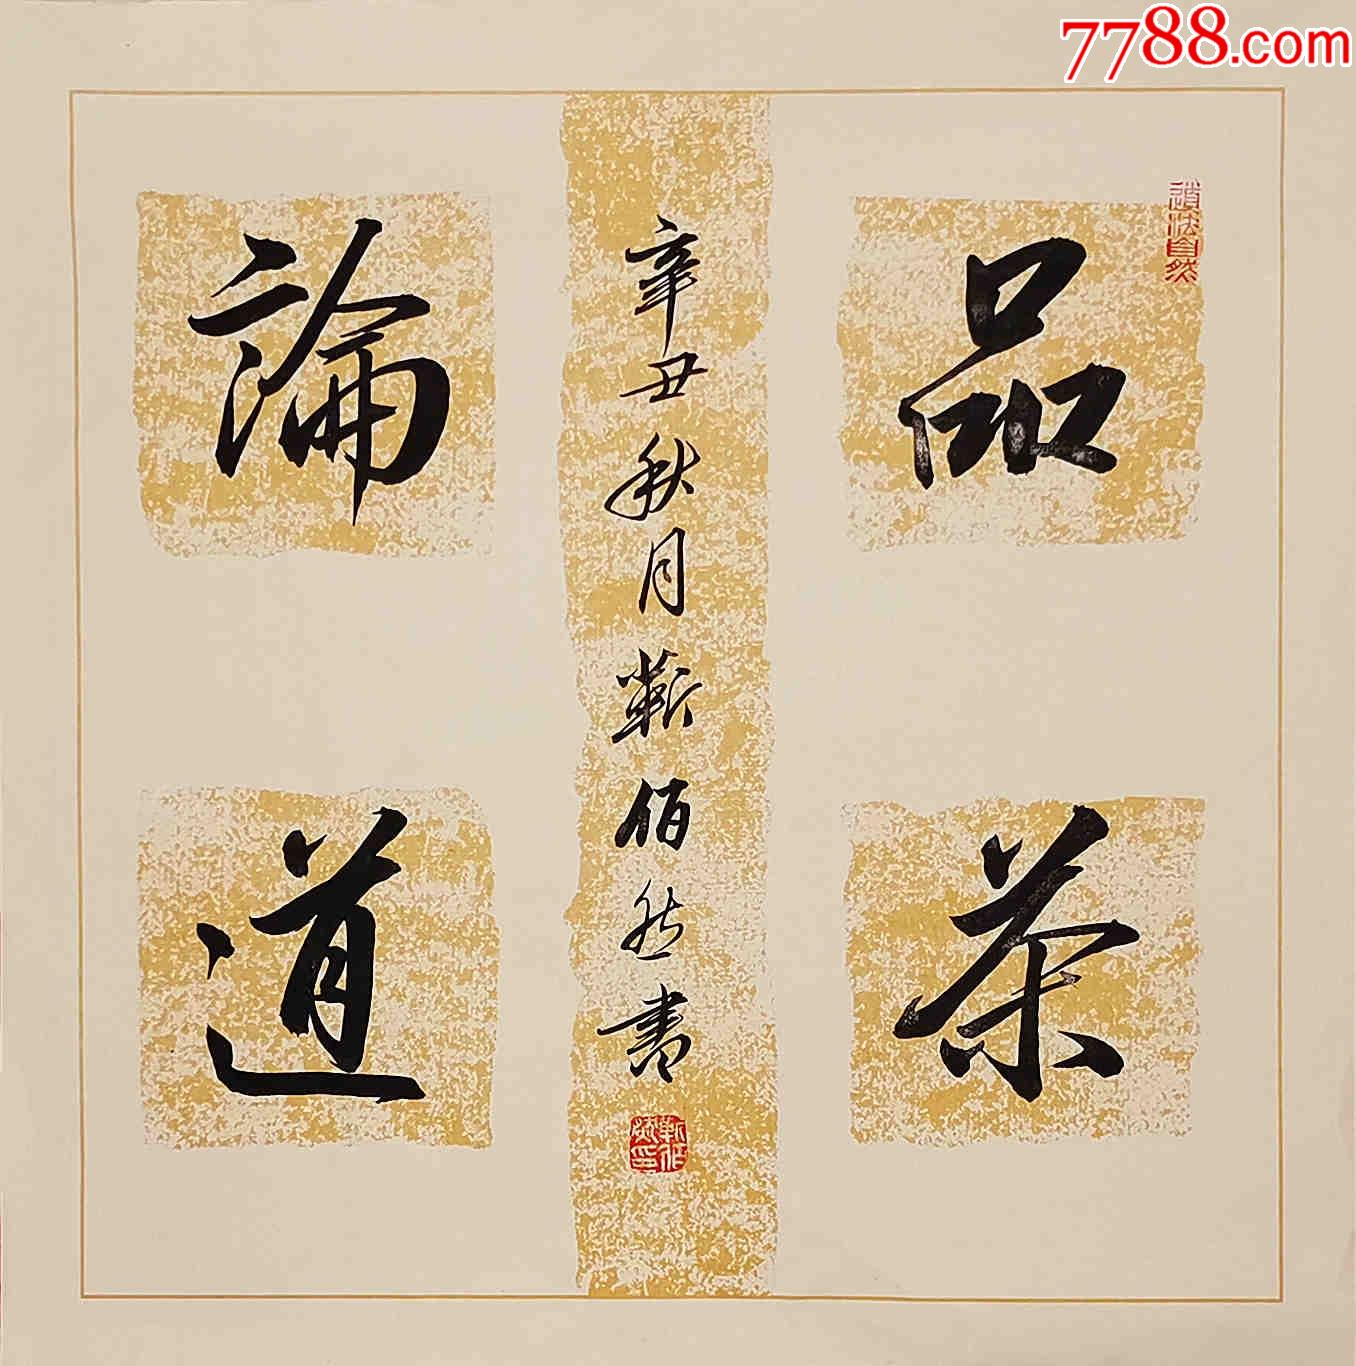 7788.com
道法自然
品茶
論道
辛丑秋月靳佰然書